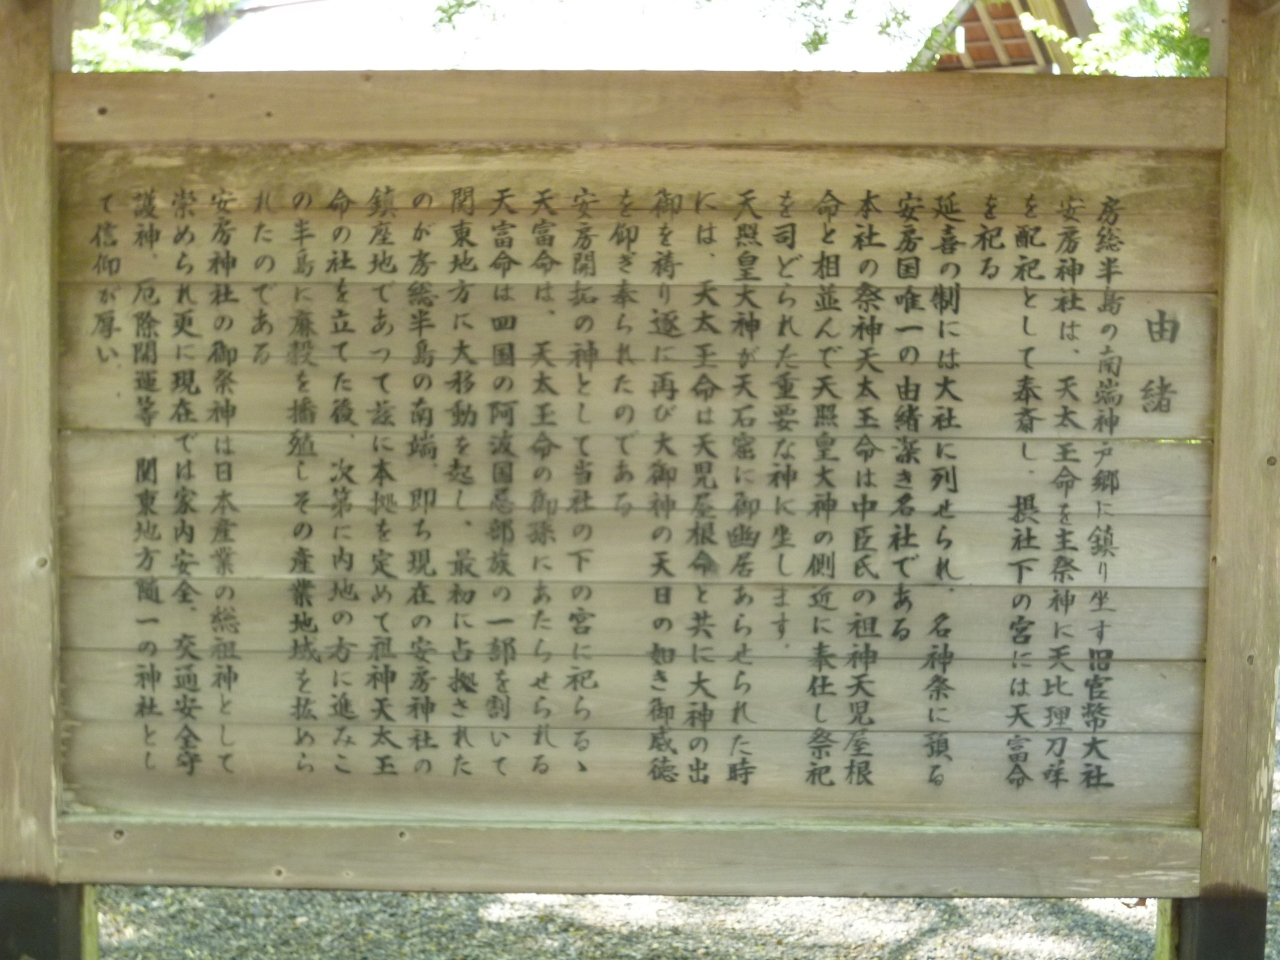 由緒
房総半島の南端神戸郷に鎮り坐す旧官幣大社
安房神社は、天太玉命を主祭神に天比理刀咩
を配祀として奉斎し、摂社下の宮には天富命
を祀る
延喜の制には大社に列せられ、名神祭に預る
安房国唯一の由緒深き名社である
本社の祭神天太玉命は中臣氏の祖神天児屋根
命と相並んで天照皇大神の側近に奉仕し祭祀
を司どられた重要な神に坐します。
天照皇大神が天石窟に御幽居あらせられた時
には、天太玉命は天児屋根命と共に大神の出
御を祷り遂に再び大御神の天日の如き御威徳
を仰ぎ奉られたのである
安房開拓の神として当社の下の宮に祀らるゝ
天富命は、天太玉命の御孫にあたらせられる
天富命は四国の阿波国忌部族の一部を割いて
関東地方に大移動を起し、最初に占拠された
のが房総半島の南端、即ち現在の安房神社の
鎮座地であつて茲に本拠を定めて祖神天太玉
命の社を立てた後、次第に内地の方に進みこ
の半島に麻穀を播殖しその産業地域を拡めら
れたのである
安房神社の御祭神は日本産業の総祖神として
崇められ更に現在では家内安全、交通安全守
護神、厄除開運等、関東地方随一の神社とし
て信仰が厚い。